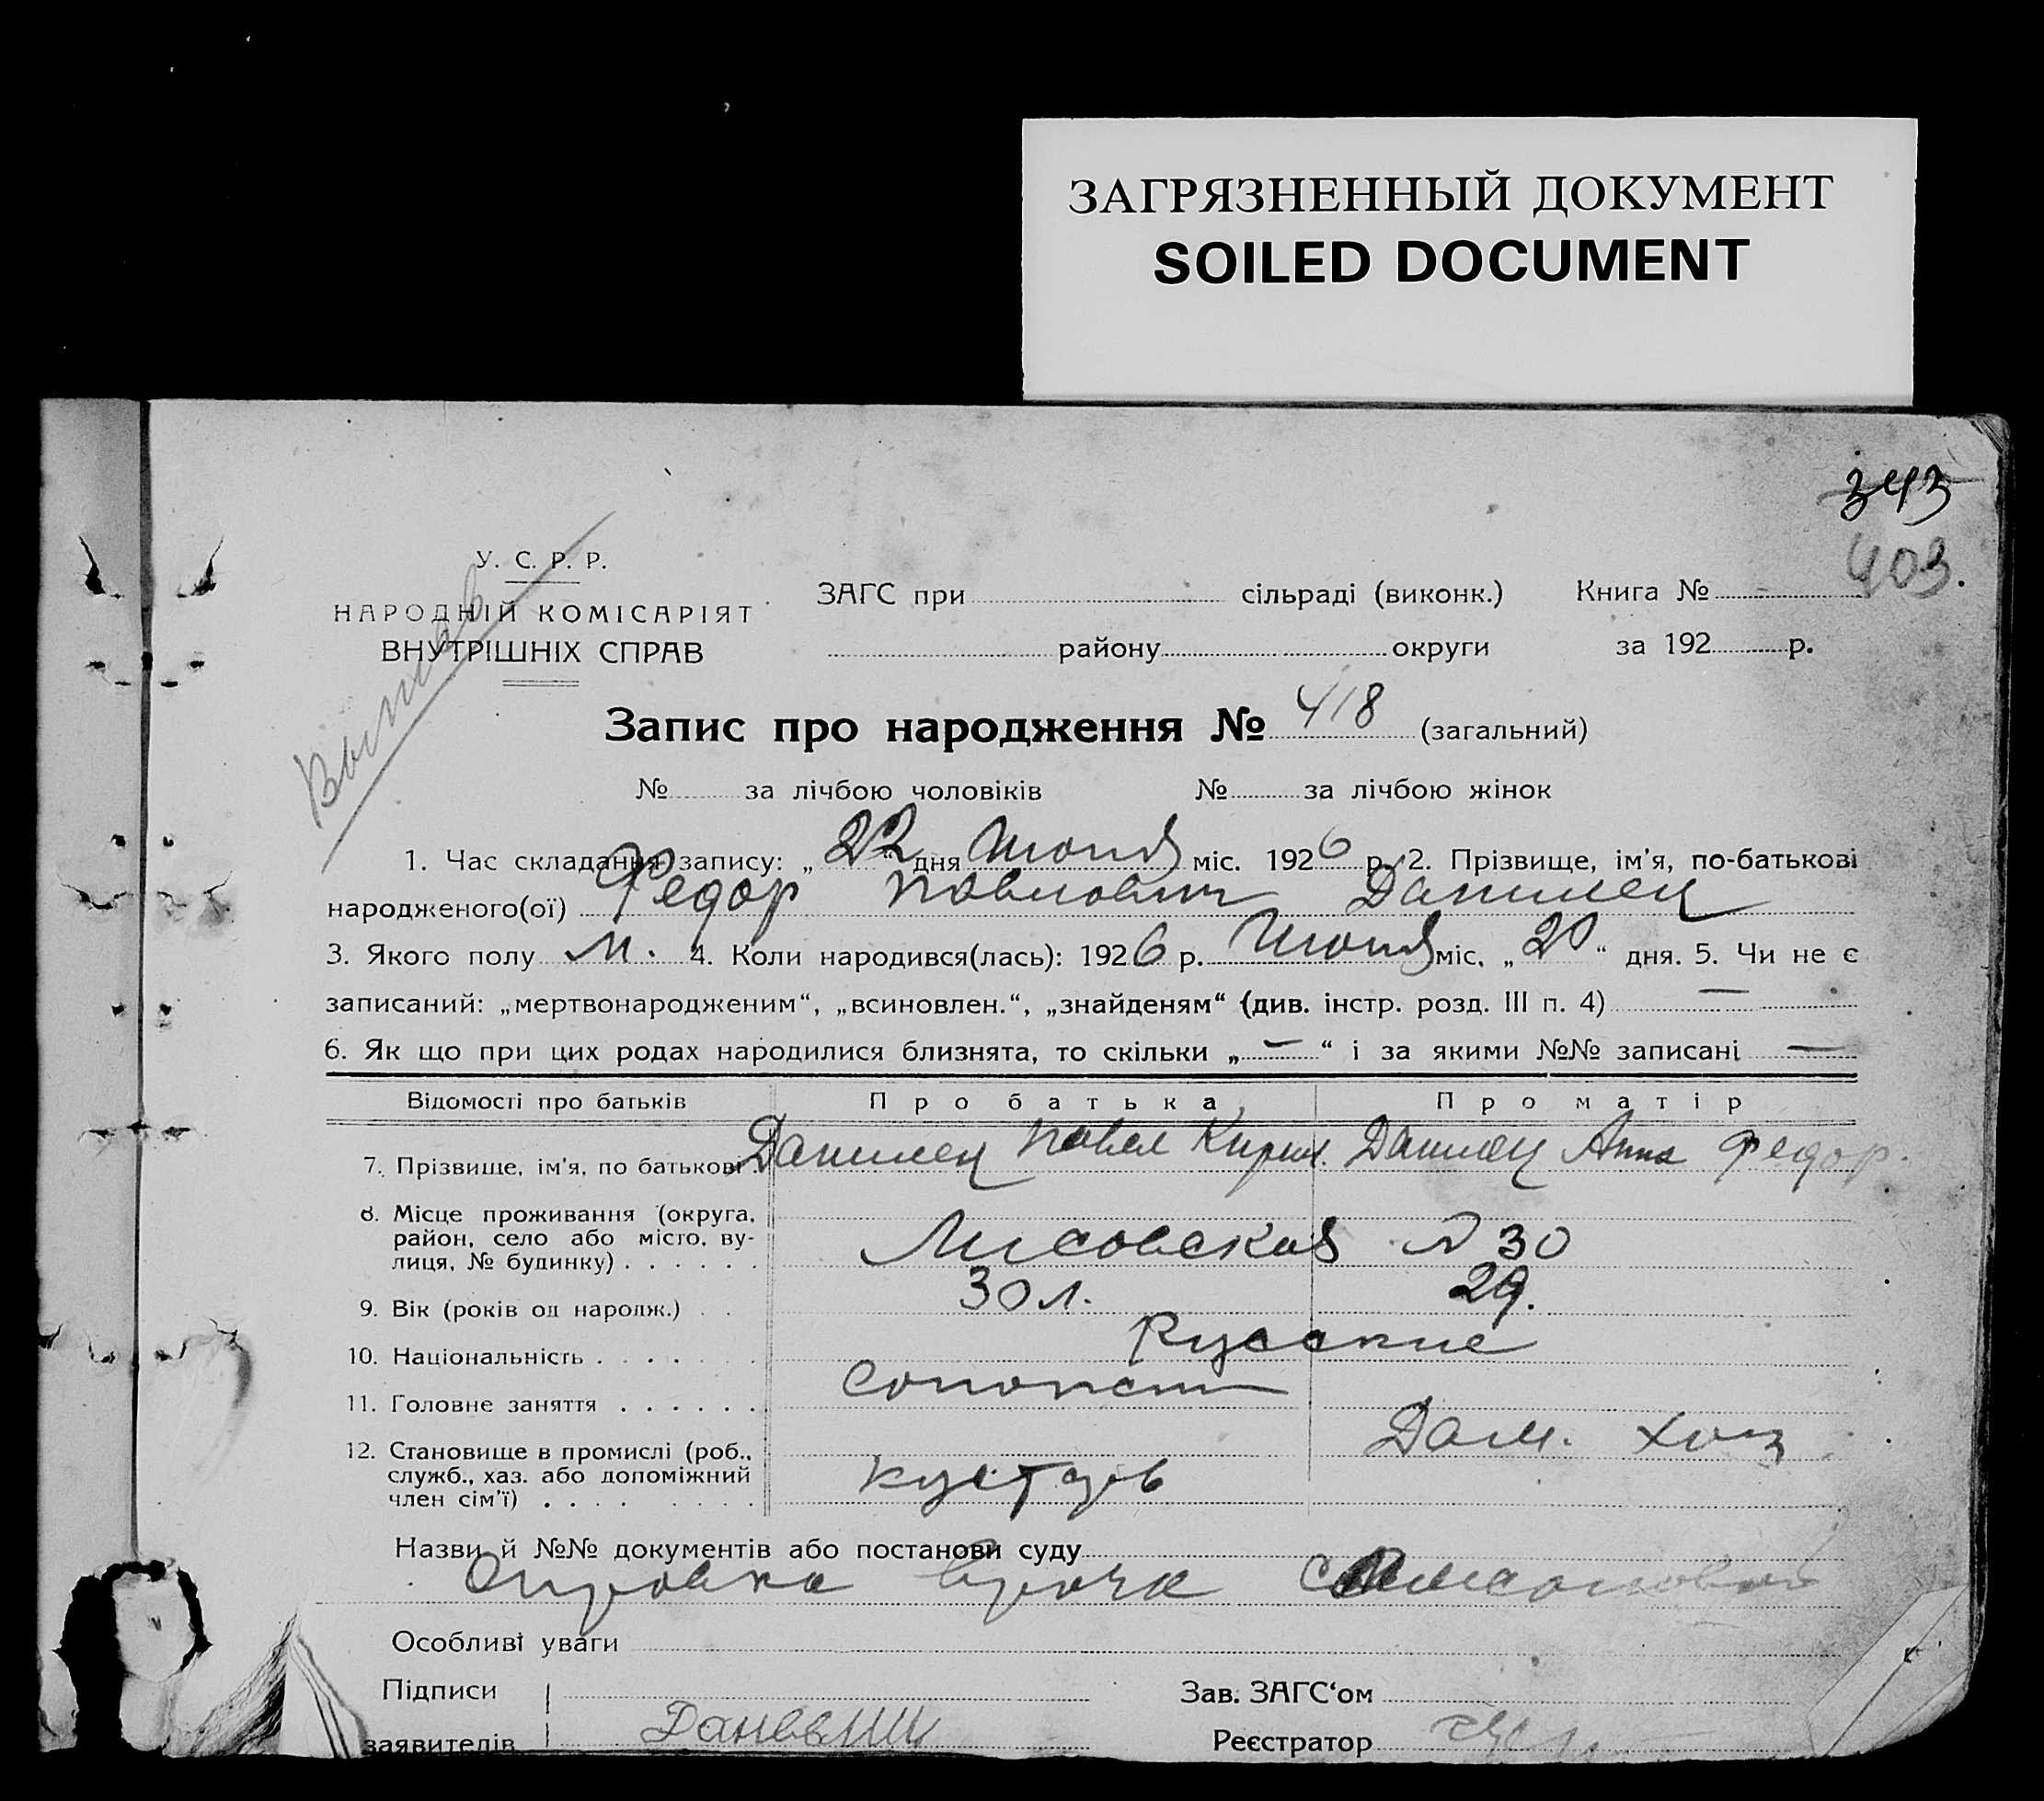 ЗАГРЯЗНЕННЫЙ ДОКУМЕНТ
SOILED DOCUMENT
343
403.
У. С. Р. Р.
НАРОДНІЙ КОМІСАРІЯТ
ВНУТРІШНІХ СПРАВ
ЗАГС при сільраді (виконк.) Книга №
району округи за 192 р.
Запис про народження № 418 (загальний)
№ за лічбою чоловіків № за лічбою жінок
1. Час складання запису: „22“ дня Июня міс. 1926 р. 2. Прізвище, ім'я, по-батькові
народженого(ої) Федор Павлович Данилец
3. Якого полу м. 4. Коли народився(лась): 1926 р. Июня міс. „20“ дня. 5. Чи не є
записаний: „мертвонародженим“, „всиновлен.“, „знайденям“ (див. інстр. розд. III п. 4) —
6. Як що при цих родах народилися близнята, то скільки „—“ і за якими №№ записані —
Відомості про батьків Про батька Про матір
7. Прізвище, ім'я, по батькові Данилец Павел Кирил. Данилец Анна Федор.
8. Місце проживання (округа,
район, село або місто, ву-
лиця, № будинку) . . . . . . Лисовская № 30
9. Вік (років од народж.) . . 30 л. 29.
10. Національність . . . . . . . Русские
11. Головне заняття . . . . . .
Дом. хоз
12. Становище в промислі (роб.,
служб., хаз. або допоміжний
член сім'ї) . . . . . . . . кустарь
Назви й №№ документів або постанови суду
Справка врача
Особливі уваги
Підписи Зав. ЗАГС'ом
заявителів Реєстратор